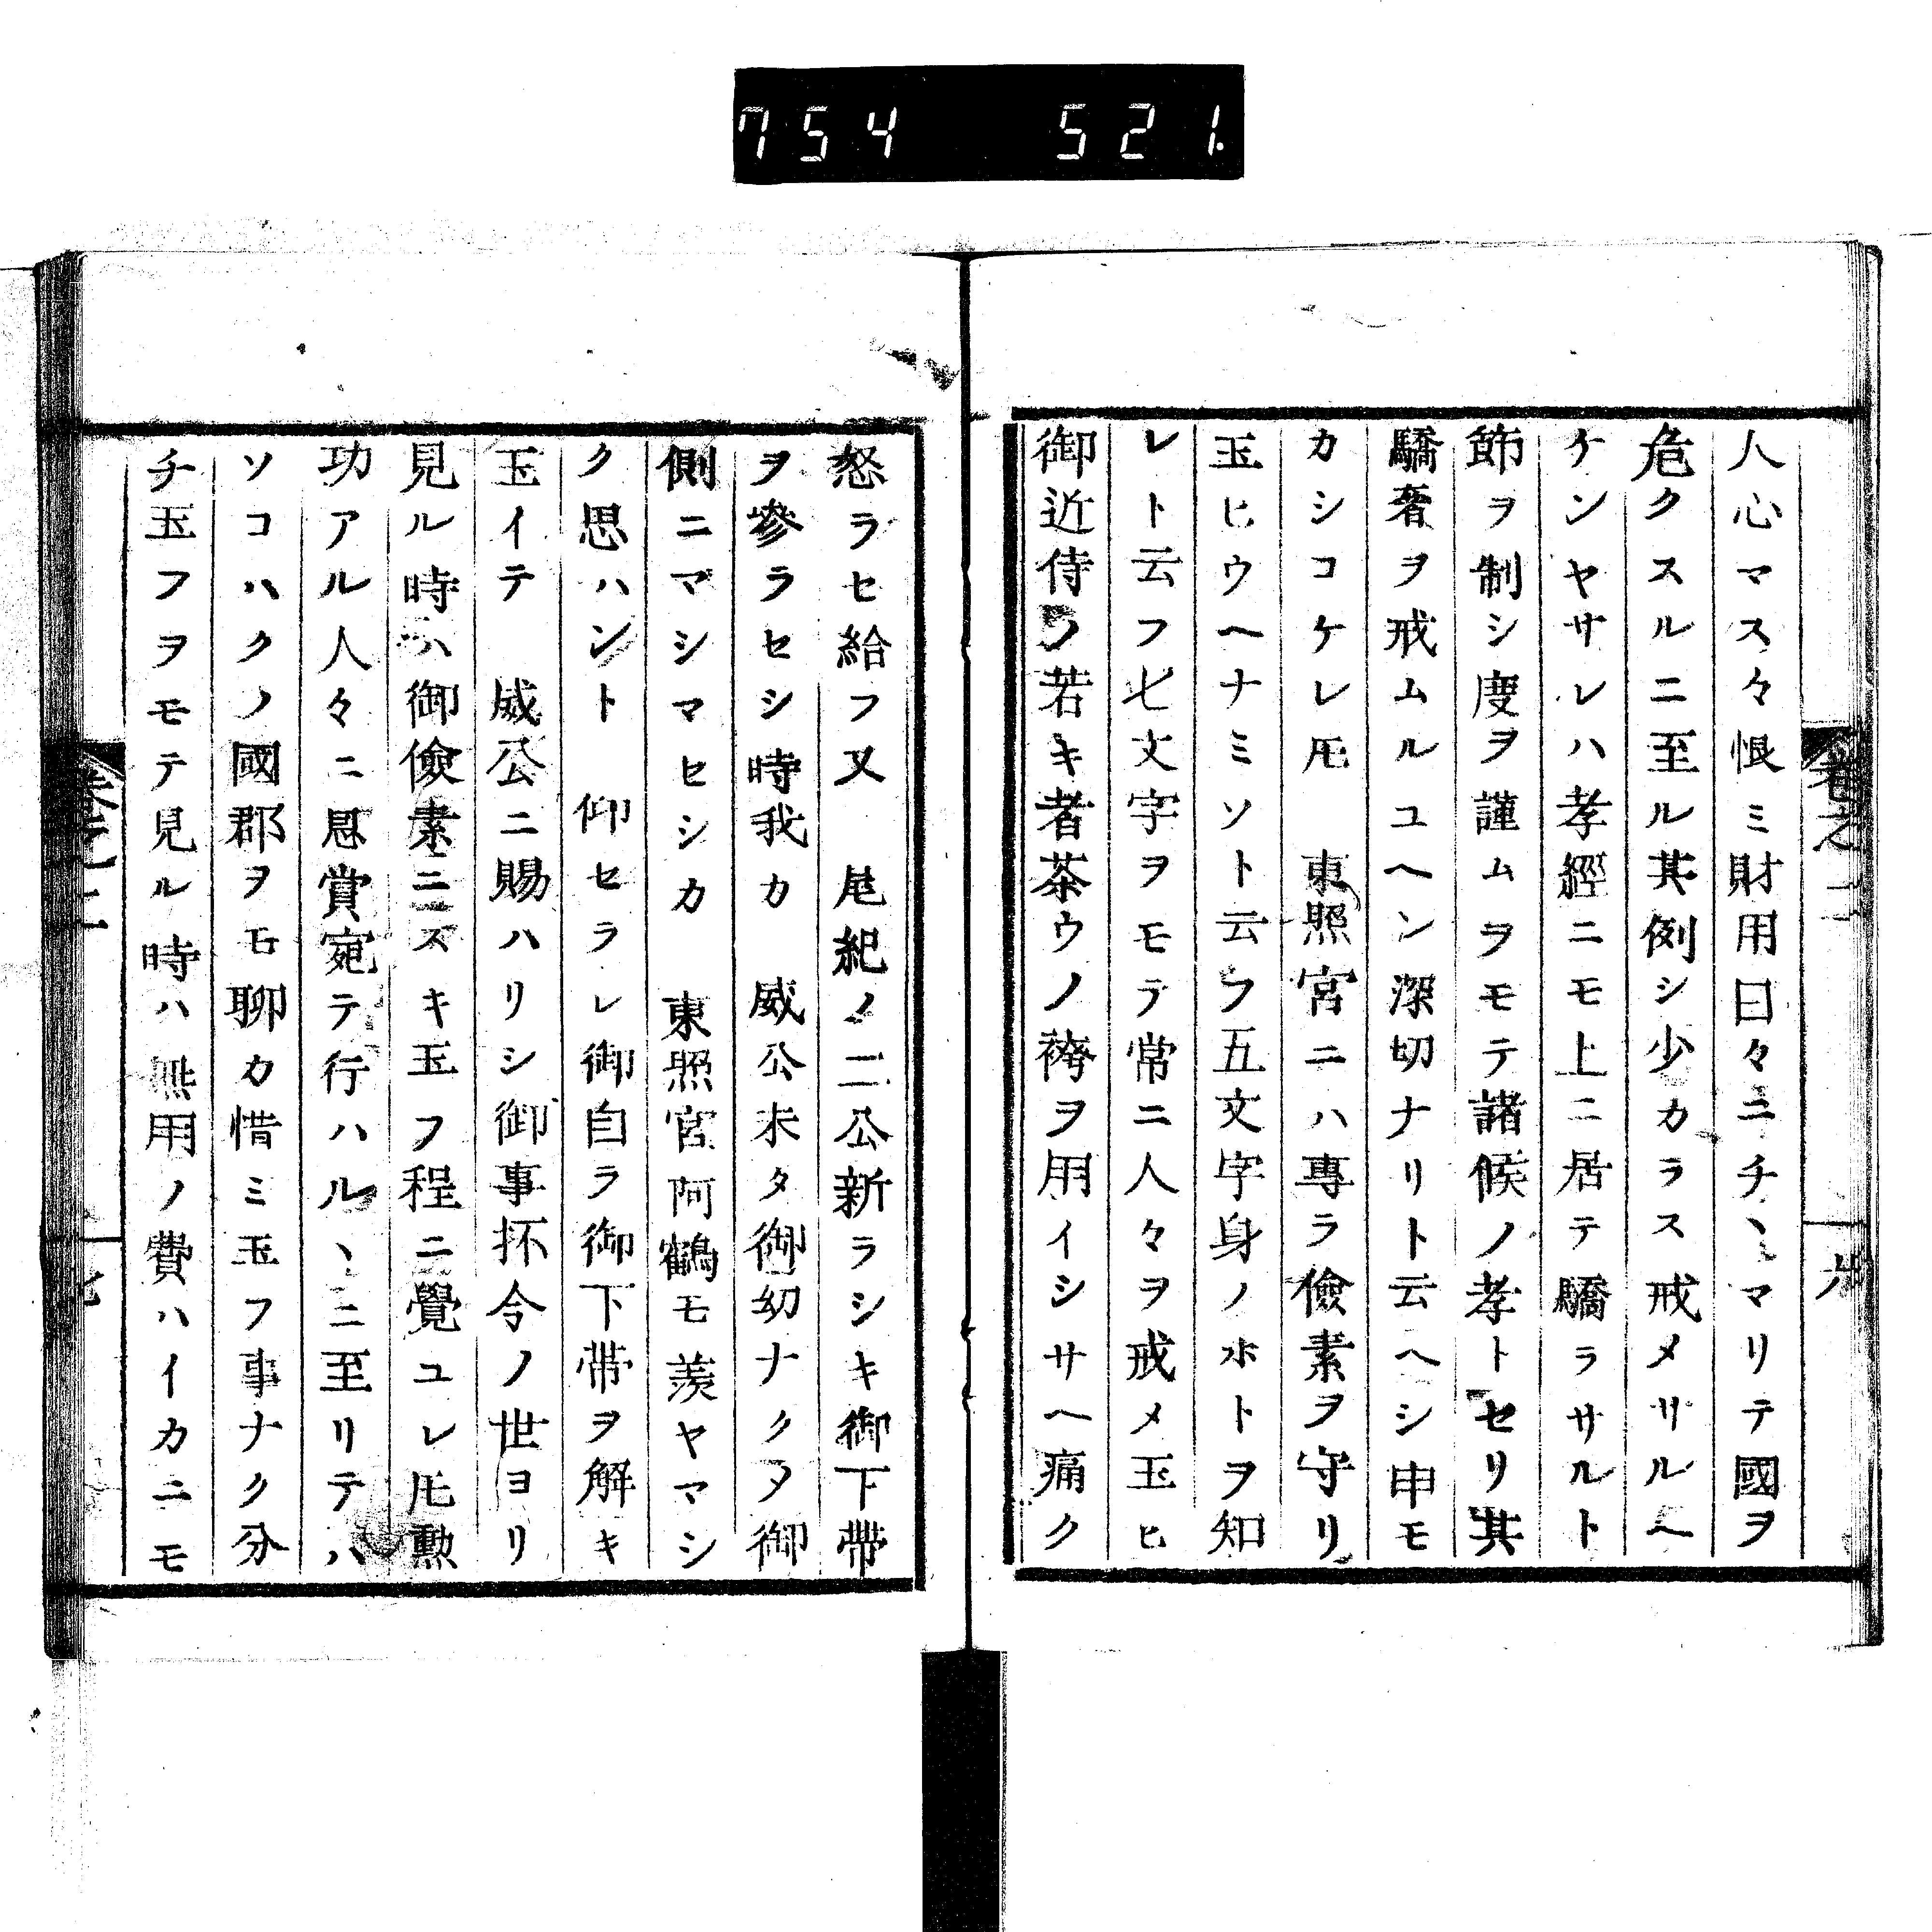 754 521.
人心マス々恨ミ財用日々ニチヽマリテ國ヲ
危クスルニ至ル其例シ少カラス戒メサルヘ
ケンヤサレハ孝經ニモ上ニ居テ驕ラサルト
節ヲ制シ度ヲ謹ムヲモテ諸候ノ孝トセリ其
驕奢ヲ戒ムルユヘン深切ナリト云ヘシ申モ
カシコケレ𪜈 東照宮ニハ專ラ儉素ヲ守リ
玉ヒウヘナミソト云フ五文字身ノホトヲ知
レト云フ七文字ヲモテ常ニ人々ヲ戒メ玉ヒ
御近侍ノ若キ者茶ウノ袴ヲ用イシサヘ痛ク
怒ラセ給フ又 尾紀ノ二公新ラシキ御下帶
ヲ參ラセシ時我カ 威公未タ御幼ナクタ御
側ニマシマヒシカ 東照宮阿鶴モ羨ヤマシ
ク思ハント 仰セラレ御自ラ御下帶ヲ解キ
玉イテ 威公ニ賜ハリシ御事抔今ノ世ヨリ
見ル時ハ御儉素ニスキ玉フ程ニ覺ユレ𪜈勲
功アル人々ニ恩賞宛テ行ハルヽニ至リテハ
ソコハクノ國郡ヲモ聊カ惜ミ玉フ事ナク分
チ玉フヲモテ見ル時ハ無用ノ費ハイカニモ